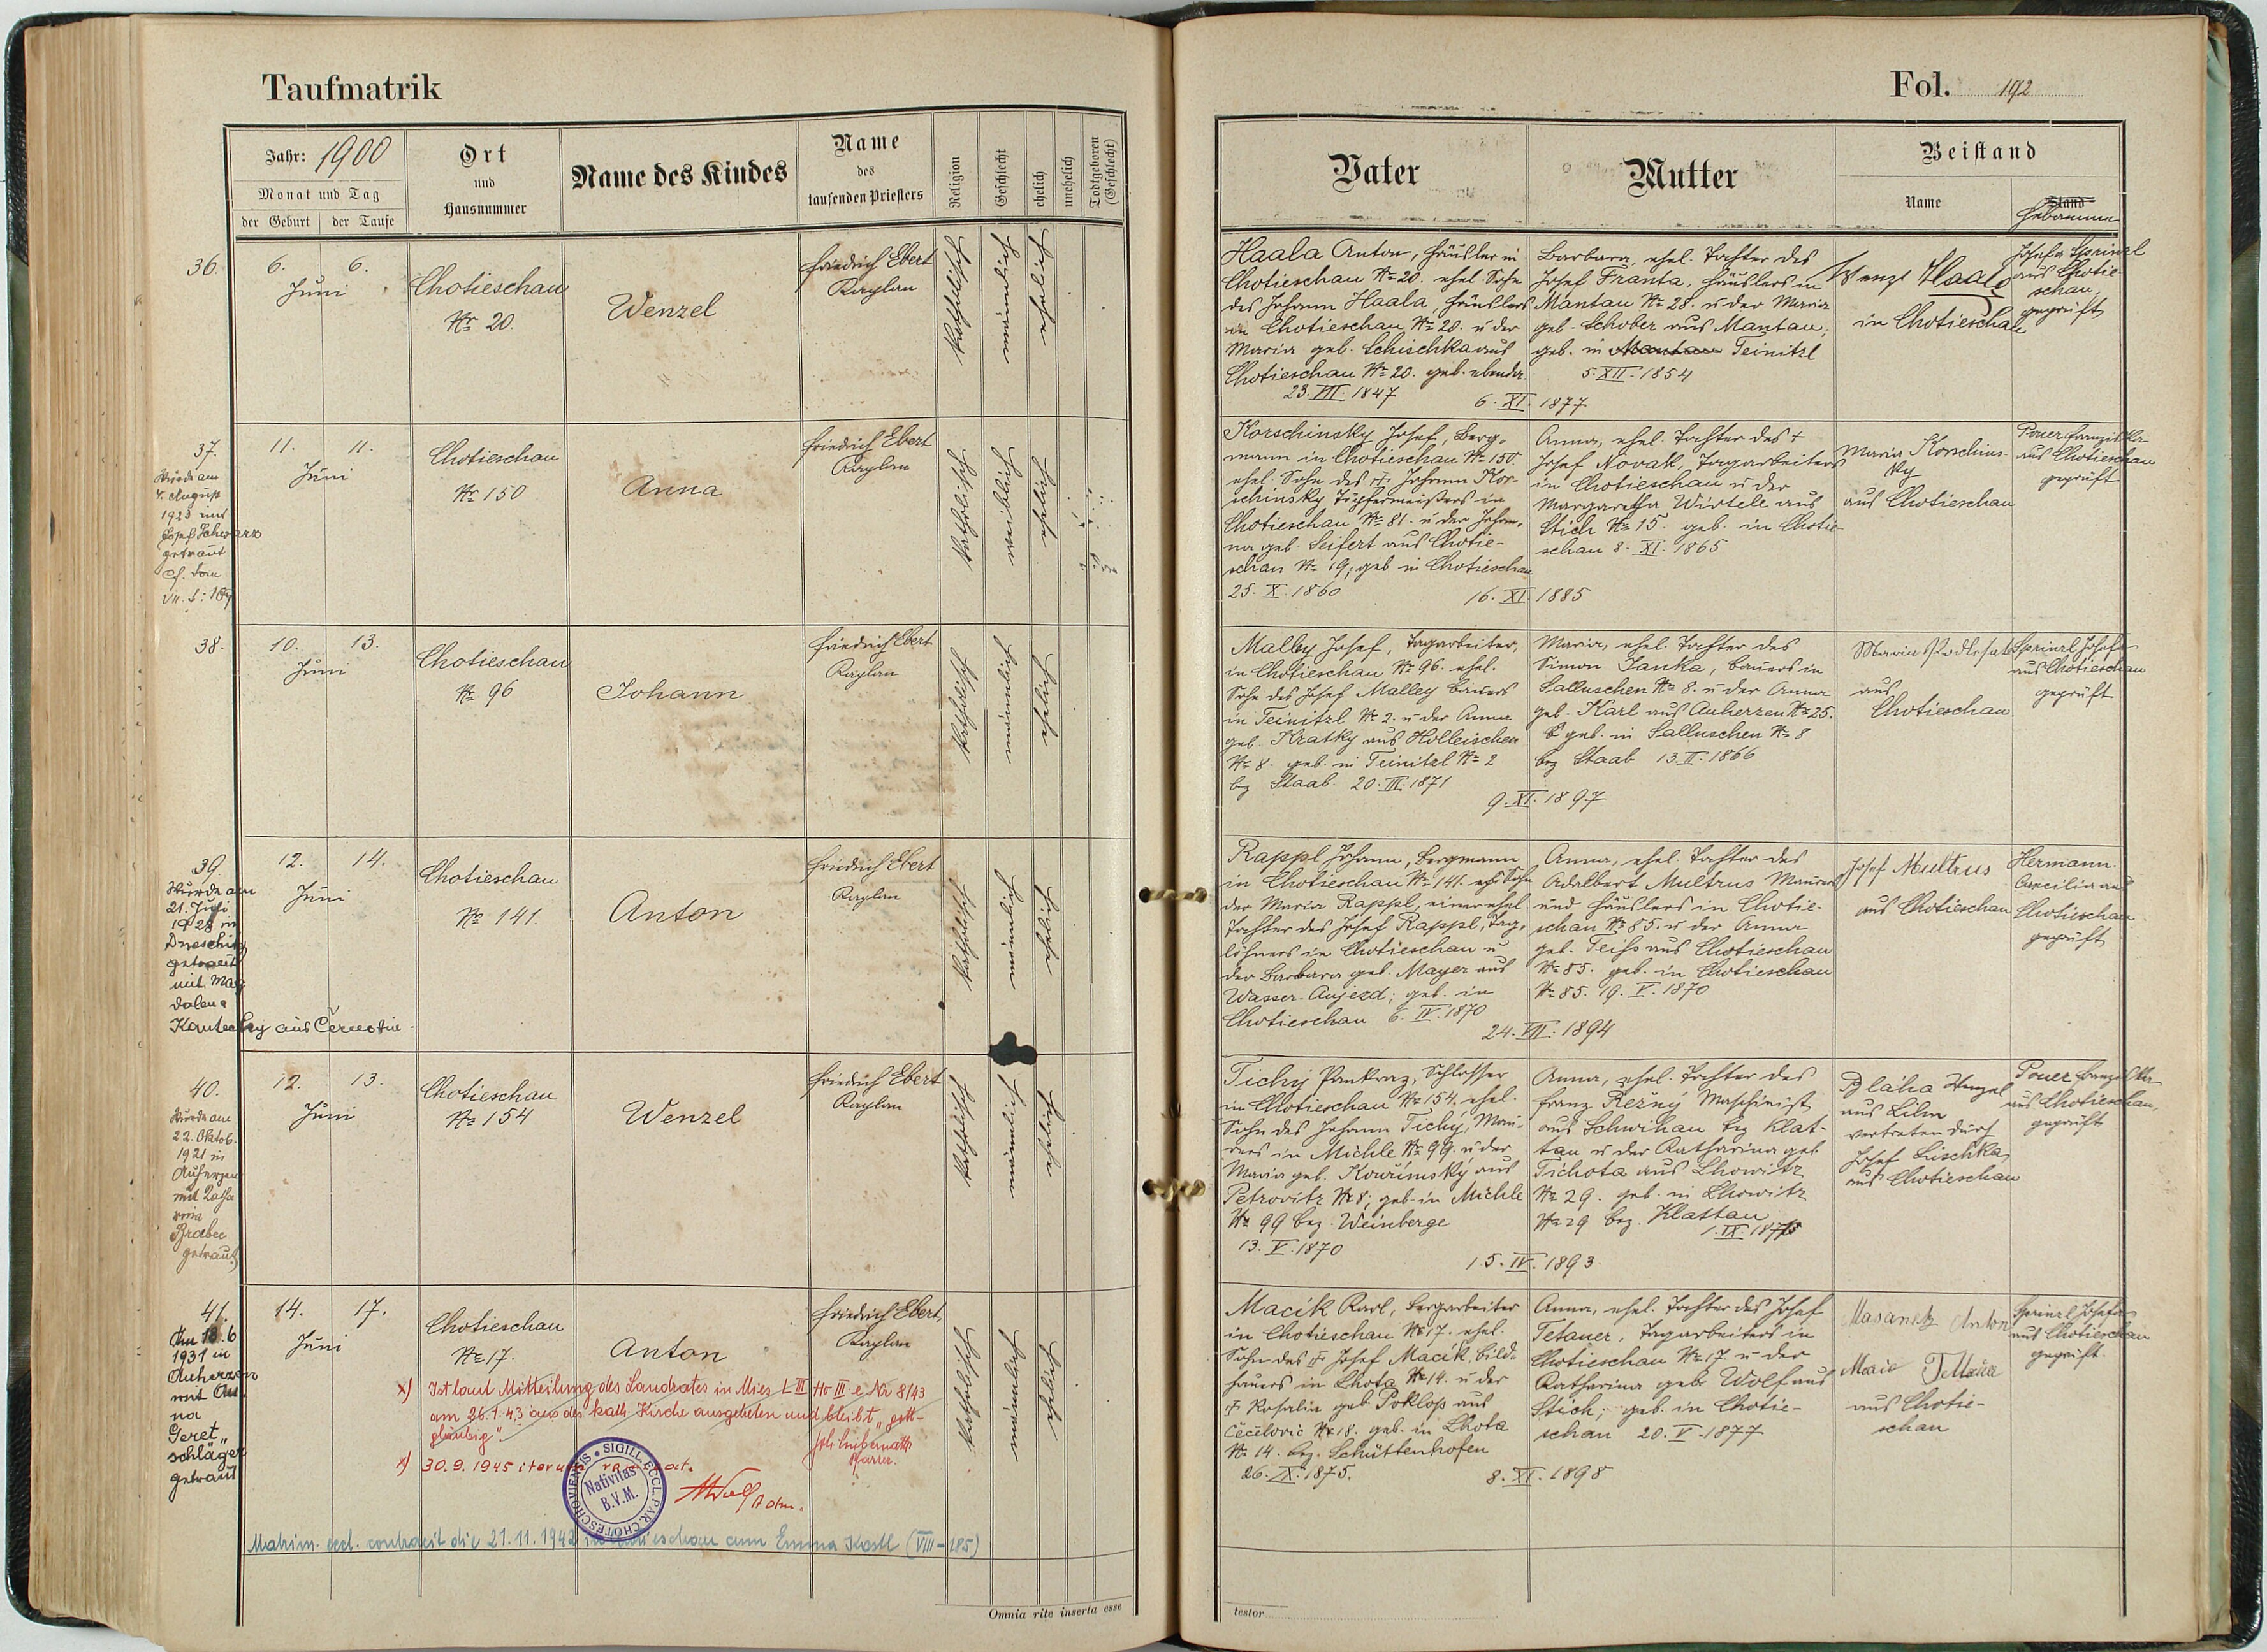 Taufmatrik
Jahr: 1900
Monat und Tag
der Geburt der Taufe
Ort
und
Hausnummer
Name des Kindes
Name
des
taufenden Priesters
Religion
Geschlecht
ehelich
unehelich
Todtgeboren
(Geschlecht)
36.
6. 6.
Juni
Chotieschau
Nr 20.
Wenzel
Friedrich Ebert
Kaplan
katholisch
männlich
ehelich
37.
Wurde am
4. August
1923 mit
Josef Schwarz
getraut
11. 11.
Juni
Chotieschau
Nr 150
Anna
Friedrich Ebert
Kaplan
katholisch
weiblich
ehelich
38.
10. 13.
Juni
Chotieschau
Nr 96
Johann
Friedrich Ebert
Kaplan
katholisch
männlich
ehelich
39.
Wurde am
21. Juli
1928 in
getraut
mit Mag
dalena
aus
12. 14.
Juni
Chotieschau
Nr 141.
Anton
Friedrich Ebert
Kaplan
katholisch
männlich
ehelich
40.
Wurde am
22. Oktob.
1921 in
Auherzen
mit Katha
rina
getraut
12. 13.
Juni
Chotieschau
Nr 154
Wenzel
Friedrich Ebert
Kaplan
katholisch
männlich
ehelich
41.
Am 18.6
1931 in
Auherzen
mit An
na
Geret„
schläger
getraut
14. 17.
Juni
Chotieschau
Nr 17.
Anton
Friedrich Ebert
Kaplan
katholisch
männlich
ehelich
x) Ist laut Mitteilung des Landrates in Mies L III Ho III e Nr 8/43
am 26.1.43 aus der kath. Kirche ausgetreten und bleibt „gott-
gläubig".
Pfarrer.
x) 30.9.1945
Adm.
SIGILL. ECCL. PAR. CHOTESCHOVIENSIS
Nativitas
B.V.M.
Matrim. eccl. contraxit die 21.11.1942 in Chotieschau cum Emma Kastl (VIII-185)
Omnia rite inserta esse
Fol. 192
Vater
Mutter
Beistand
Name
Stand
Hebamme
Haala Anton, Häusler in
Chotieschau Nr 20. ehel. Sohn
des Johann Haala, Häuslers
in Chotieschau Nr 20. u der
Maria geb. Schischka aus
Chotieschau Nr 20. geb. ebenda
23. VII. 1847
Barbara, ehel. Tochter des
Josef Franta, Häuslers in
Mantau Nr 28. u der Maria
geb. Schober aus Mantau;
geb. in Mantau Teinitzl
5. XII. 1854
6. XI. 1877
Wenzl Haala
in Chotieschau
Josefa Sprinzl
aus Chotie-
schau,
geprüft
Korschinsky Josef, Berg-
mann in Chotieschau Nr 150.
ehel. Sohn des † Johann Kor-
schinsky Töpfermeisters in
Chotieschau Nr 81. u der Johan-
na geb. Seifert aus Chotie-
schau Nr 19; geb in Chotieschau
25. X. 1860
Anna, ehel. Tochter des †
Josef Novak, Tagarbeiters
in Chotieschau u der
Margaretha Wirtele aus
Stich Nr 15. geb. in Chotie-
schau 8. XI. 1865
16. XI. 1885
Maria Korschins-
ky
aus Chotieschau
Pouer Franziska
aus Chotieschau
geprüft
Malley Josef, Tagarbeiter,
in Chotieschau Nr 96. ehel.
Sohn des Josef Malley Bauers
in Teinitzl Nr 2. u der Anna
geb. Kratky aus Holleischen
Nr 8. geb. in Teinitzl Nr 2
bez Staab. 20. III. 1871
Maria, ehel. Tochter des
Simon Janka, Bauers in
Salluschen Nr 8. u der Anna
geb. Karl aus Auherzen Nr 25.
geb. in Salluschen Nr 8
bez Staab 13. II. 1866
9. XI. 1897
Maria
aus
Chotieschau
Sprinzl Josefa
aus Chotieschau
geprüft
Rappl Johann, Bergmann
in Chotieschau Nr 141. ehel. Sohn
der Maria Rappl, einer ehel.
Tochter des Josef Rappl, Tag-
löhners in Chotieschau u
der Barbara geb. Mayer aus
Wasser-Aujezd; geb. in
Chotieschau 6. IV. 1870
Anna, ehel. Tochter des
Adalbert Multrus Maurers
und Häuslers in Chotie-
schau Nr 85. u der Anna
geb. Teiss aus Chotieschau
Nr 85. geb. in Chotieschau
Nr 85. 19. V. 1870
24. VII. 1894
Josef Multrus
aus Chotieschau
Hermann
Caecilia aus
Chotieschau
geprüft
Tichý Pankraz, Schlosser
in Chotieschau Nr 154. ehel.
Sohn des Johann Tichý, Mau-
rers in Michle Nr 99. u der
Maria geb. Kouřimský aus
Petrovitz Nr 8; geb. in Michle
Nr 99 bez. Weinberge
13. V. 1870
Anna, ehel. Tochter des
Franz Režný Maschinist
aus Schwihau bez Klat-
tau u der Katharina geb
Tichota aus Lhowitz
Nr 29. geb. in Lhowitz
Nr 29 bez. Klattau
15. IV. 1893
Blaha Wenzel
aus
vertreten durch
Josef Lischka
aus Chotieschau
Pouer Franziska
aus Chotieschau,
geprüft
Macik Karl, Bergarbeiter
in Chotieschau Nr 17. ehel.
Sohn des † Josef Macik, Bild-
hauers in Lhota Nr 14. u der
† Rosalia geb. Poklop aus
Čečelovic Nr 18. geb. in Lhota
Nr 14. bez. Schüttenhofen
26. IX. 1875.
Anna, ehel. Tochter des Josef
Tetauer, Tagarbeiters in
Chotieschau Nr 17 u der
Katharina geb. Wolf aus
Stich; geb. in Chotie-
schau 20. V. 1877
8. XI. 1898
Masanetz Anton
aus Chotie-
schau
Sprinzl Josefa
aus Chotieschau
geprüft.
testor